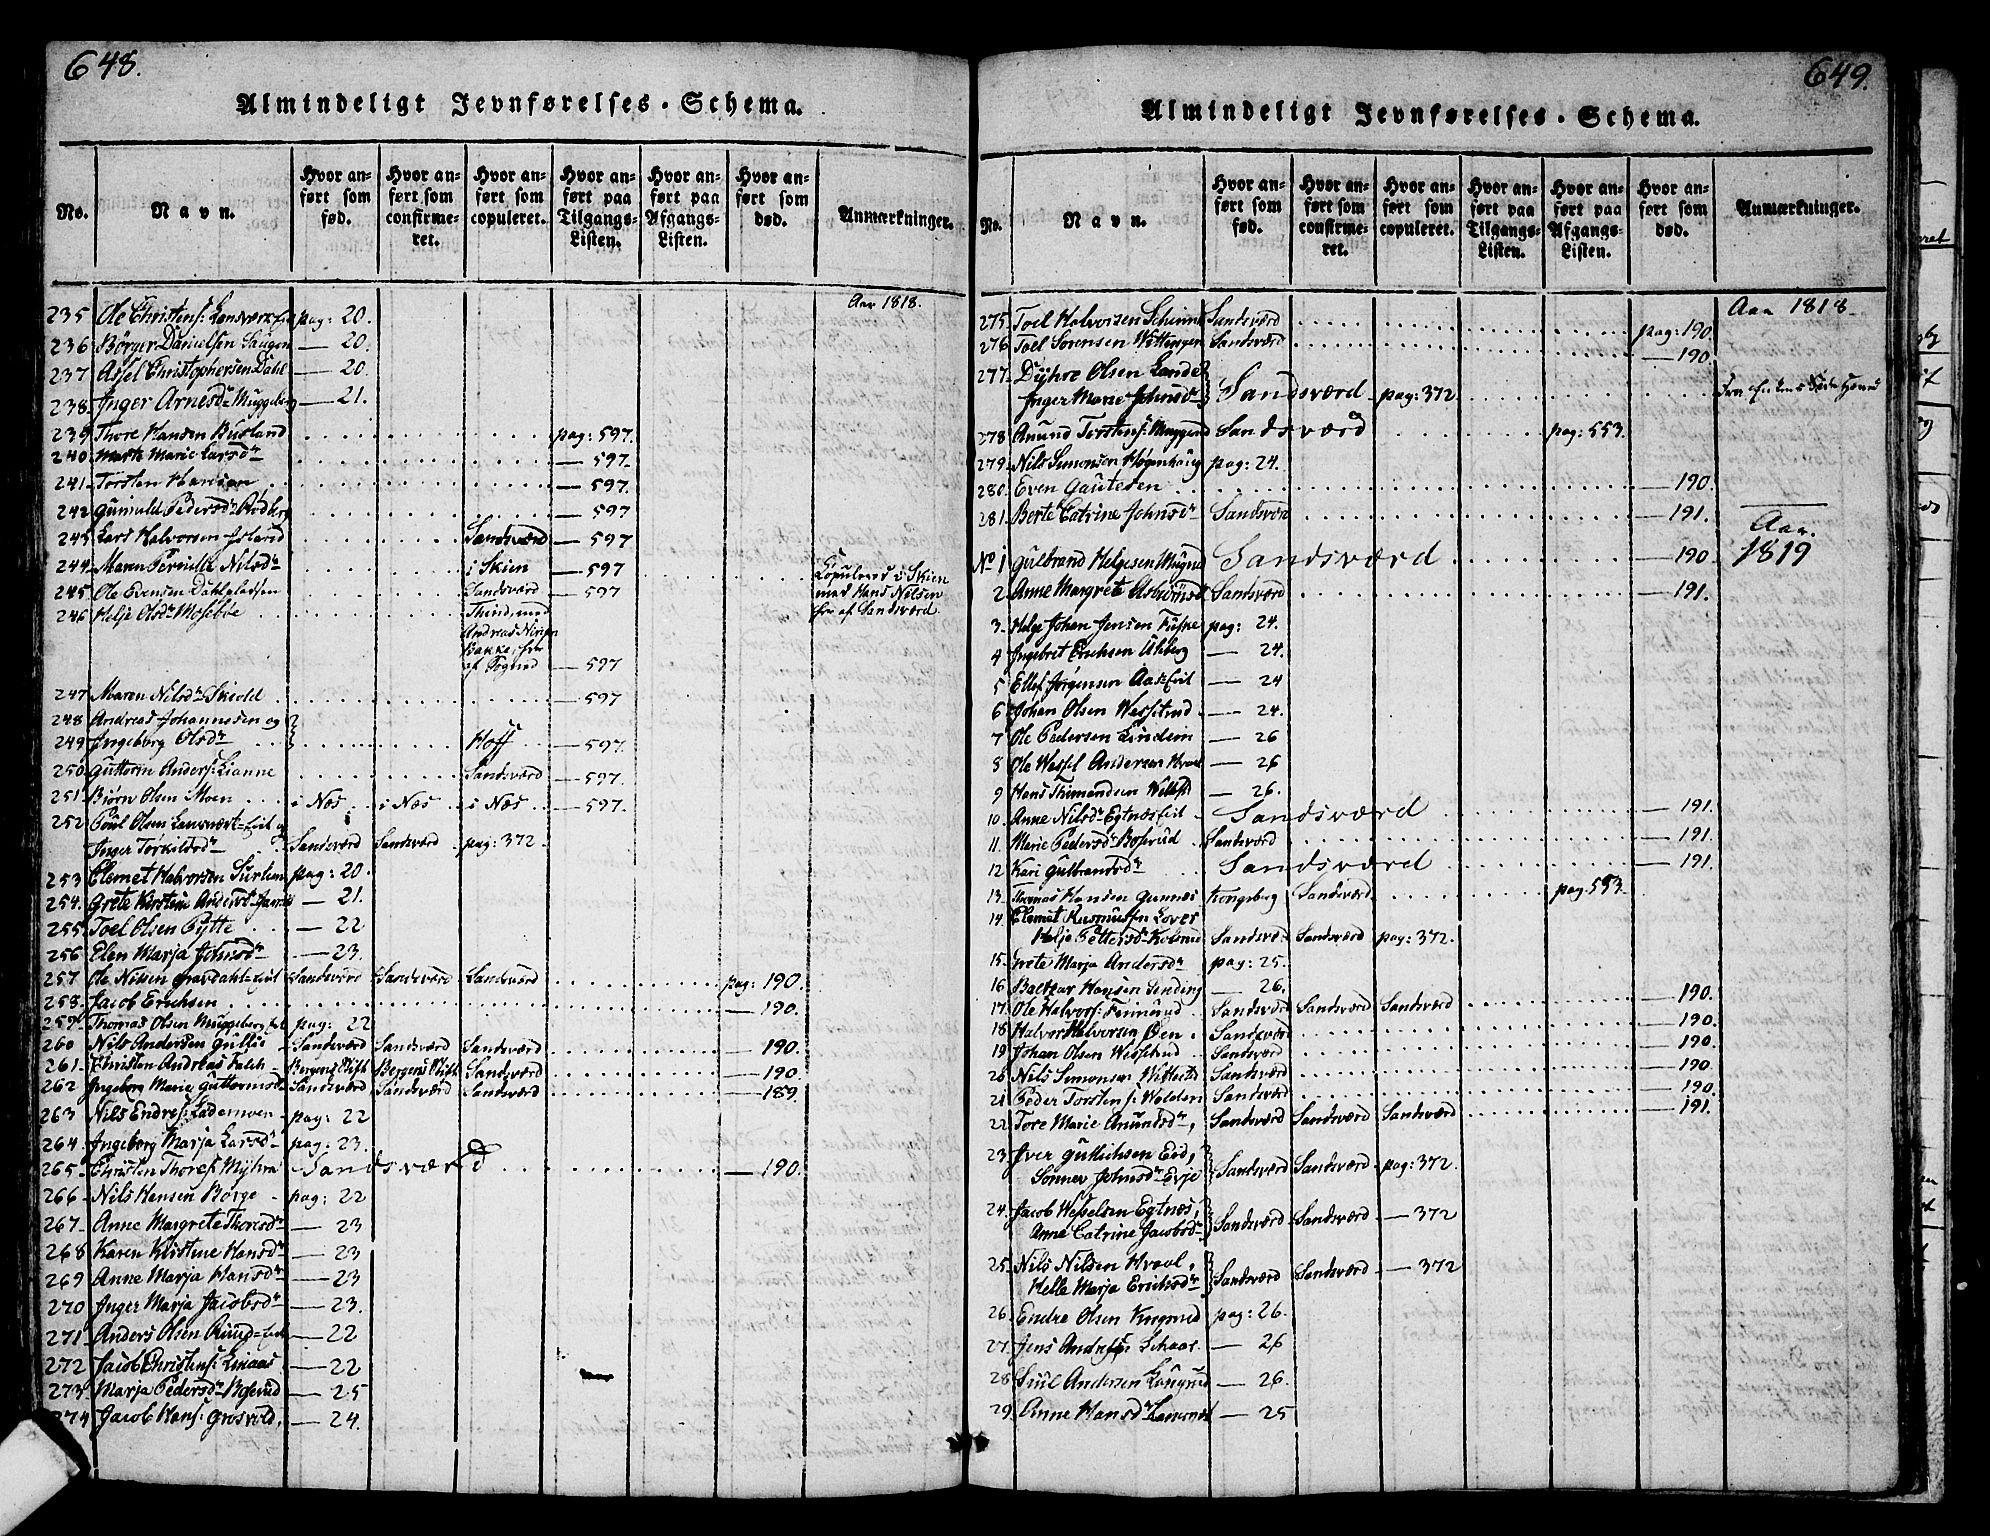 648.
Almindeligt Jevnførelses-Schema.
No.
Navn.
Hvor anført som fød.
Hvor anført som confirmeret.
Hvor anført som copuleret.
Hvor anført paa Tilgangs-Listen.
Hvor anført paa Afgangs-Listen.
Hvor anført som død.
Anmærkninger.
Aar 1818.
235 Ole Christens: pag: 20.
236 Børger Danielsen Haugen — 20.
237 Assel Christophersen Dahl — 20.
238 Inger Arnesdr Muggeberg — 21.
239 Thore Hansen Busland pag: 597.
240 Marte Marie Larsdr — 597.
241 Torsten Hansen — 597.
242 Gunuld Pedersdr — 597
243 Lars Halvorsen Sandsværd — 597
244 Maren Pernille Nilsdr i Skien — 597 Copuleret i Skien
med Hans Nilsen
her af Sandsværd
245 Ole Evensen Sandsværd — 597
246 Helje Olsdr Mosebøe
Andreas
Bakke, her
af Sognet — 597
247 Maren Nilsdr — 597
248 Andreas Johannesen og
249 Ingeborg Olsdr Hoff — 597.
250 Guttorm Anders: Lianne Sandsværd — 597.
251 Biørn Olsen Moen i Næs i Næs i Næs — 597.
252 Poul Olsen
Inger Torkildsdr Sandsværd Sandsværd pag: 372
253 Clemet Halvorsen pag: 20.
254. Grete Kirstine — 21.
255 Toel Olsen Pytte — 22
256 Elen Marja Johnsdr — 23.
257 Ole Nilsen Sandsværd Sandsværd Sandsværd pag: 190.
258. Jacob Erichsen — 190.
259 Thomas Olsen Muggeberg pag: 22
260 Nils Andersen Sandsværd Sandsværd Sandsværd — 190.
261. Christen Andreas Bergens Stift Bergens Stift Sandsværd — 190
262 Ingeborg Marie Guttormsdr Sandsværd Sandsværd Sandsværd — 189.
263 Nils Endres: Lademoen pag: 22
264. Ingeborg Marja Larsdr pag: 23.
265 Christen Thores: Myhra Sandsværd — 190.
266 Nils Hansen Borge pag: 22
267 Anne Margrete Thoresdr — 23
268 Karen Kirstine Hansdr — 23
269 Anne Marja Hansdr — 23
270 Inger Marja Jacobsdr — 23.
271 Anders Olsen — 22
272 Jacob Christens: — 22
273 Marja Pedersdr Bøserud — 25
274 Jacob Hans: Grosvold, — 24.
649.
Almindeligt Jevnførelses-Schema.
No.
Navn.
Hvor anført som fød.
Hvor anført som confirmeret.
Hvor anført som copuleret.
Hvor anført paa Tilgangs-Listen.
Hvor anført paa Afgangs-Listen.
Hvor anført som død.
Anmærkninger.
Aar 1818
275 Toel Halvorsen Sandsværd pag: 190
276 Toel Sørensen Wittingen Sandsværd — 190.
277 Dyhre Olsen Lande
Inger Marie Johnsdr Sandsværd pag: 372
278 Anund Torstens: Sandsværd pag: 553.
279. Nils Simonsen Høgenhaug pag: 24.
280. Even Gautesen — 190.
281. Berte Catrine Johnsdr Sandsværd — 191.
Aar.
1819
No 1 Gulbrand Helgesen Sandsværd — 190
2 Anne Margrete Sandsværd — 191.
3. Helge Johan Jensen pag: 24.
4 Ingebret Erichsen — 24.
5 Ellef Jørgensen — 24
6 Johan Olsen — 24.
7 Ole Pedersen Lindem — 26
8 Ole Wessel Andersen — 26
9 Hans — 26.
10. Anne Nilsdr Sandsværd — 191.
11. Marie Pedersdr Bøserud Sandsværd — 191.
12 Kari Gulbrandsdr Sandsværd — 191.
13. Thomas Hansen Gunnes Kongsberg Sandsværd pag: 553.
14. Clemet Rasmussen
Helje Pettersdr Sandsværd Sandsværd pag: 372.
15. Grete Marja Andersdr pag: 25.
16 Baltzar Hansen — 26.
17. Ole Halvors: Sandsværd Sandsværd Sandsværd — 190.
18 Halvor Halvorsen Øen Sandsværd — 190.
19 Johan Olsen Sandsværd — 190.
20 Nils Simonsen Sandsværd — 190
21 Peder Torstens: Sandsværd — 190
22 Tore Marie Anundsdr, Sandsværd Sandsværd Sandsværd — 191.
23. Iver Gutlichsen Eid,
Sønner Johnsdr Evje Sandsværd Sandsværd pag: 372.
24. Jacob Wesselsen Egtnæs,
Anne Catrine Jacobsdr Sandsværd Sandsværd — 372
25. Nils Nilsen Hvaal,
Helle Marja Erichsdr Sandsværd Sandsværd — 372
26. Endre Olsen pag: 26.
27. Jens Andres: — 26
28 Andersen — 26.
29. Anne Hansdr — 25